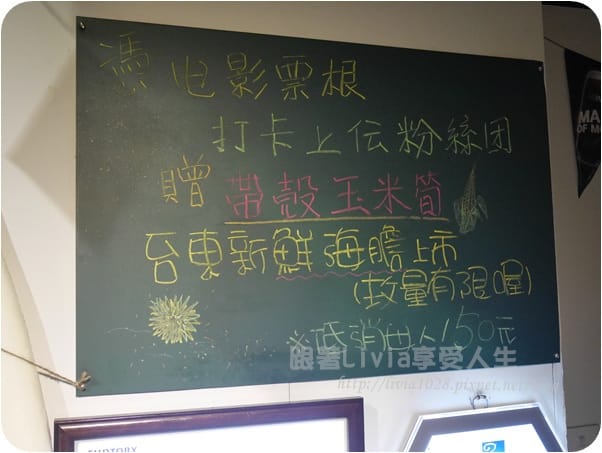 憑电影票根
打卡上传粉絲团
贈 帶殼玉米筍
台東新鮮海膽上市
(數量有限喔)
※低消由人150元
跟著Livia享受人生
http://livia1028.pixnet.net
MA
OF MO
SUNTORY